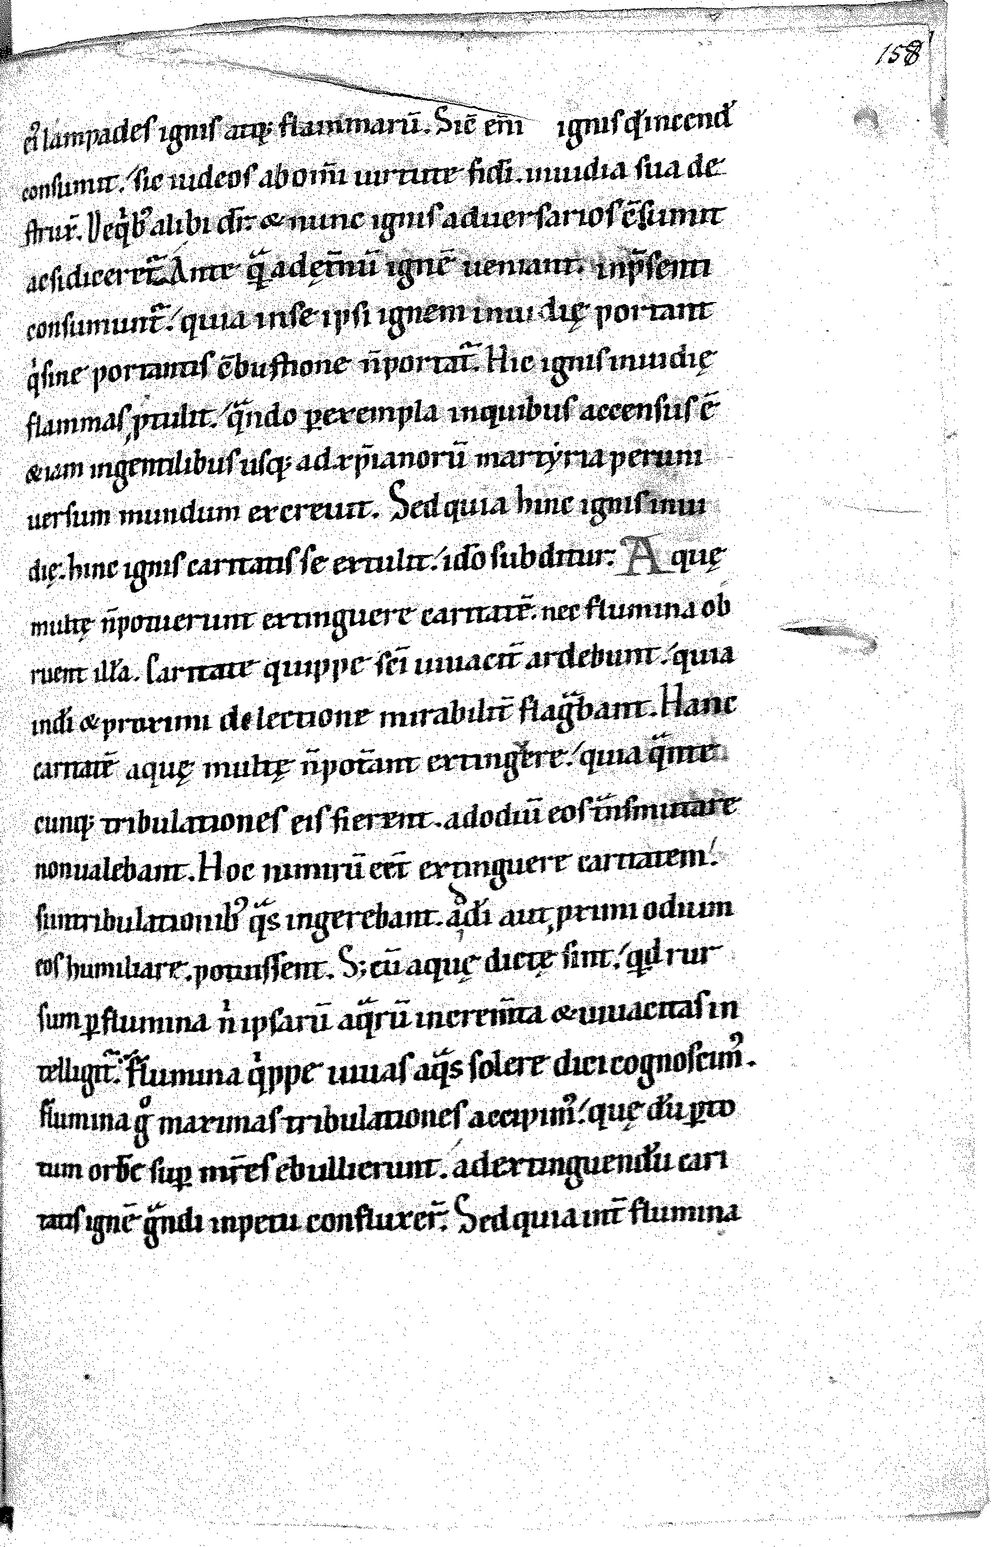 158
ei᷒ lampades ignis atq; flammarū. Sic̄ em̄ ignis q̇ incend̄
consumit. sic iudeos ab om̄i uirtute fidi. inuidia sua de
strux̄. De q̇b᷒ alibi dr̄. & nunc ignis aduersarios c̄sumit
ac si diceret᷑. Ante qᷓ ad ęt̄nū ignē ueniant. in p̄senti
consumunt᷑. quia in se ipsi ignem inuidię portant
q̇ sine portantis c̄bustione n̄ portat᷑. Hic ignis inuidię
flammas ꝓtulit. qᷓndo ꝑ exempla in quibus accensus ē
& iam in gentilibus usq; ad xp̄ianorū martyria per uni
uersum mundum excreuit. Sed quia hinc ignis inui
dię. hinc ignis caritatis se extulit. id̄o subditur. Aquę
multę n̄ potuerunt extinguere caritatē. nec flumina ob
ruent illā. Caritate quippe sc̄i uiuacit̄ ardebunt. quia
in dī & proximi delectione mirabilit̄ flagᷓbant. Hanc
caritatē aquę multę n̄ potᷓant extingere. quia qᷓnte
cunq; tribulationes eis fierent. ad odiū eos tᷓnsmutare
non ualebant. Hoc nimirū eēt extinguere caritatem.
si in tribulationib᷒ qᷓs ingerebant. ad dī aut ꝓximi odium
eos humiliare potuissent. S; cū aquę dictę sint. qd̄ rur
sum ꝑ flumina n̄ ipsarū aqᷓrū increm̄ta & uiuacitas in
telligit᷑. Flumina q̇ppe uiuas aqᷓs solere dici cognoscim᷒.
flumina gͦ maximas tribulationes accipim᷒. quę dū ꝑ to
tum orbē suꝑ mr̄es ebullierunt. ad extinguendū cari
tatis ignē gᷓndi inpetu confluxer̄. Sed quia int̄ flumina